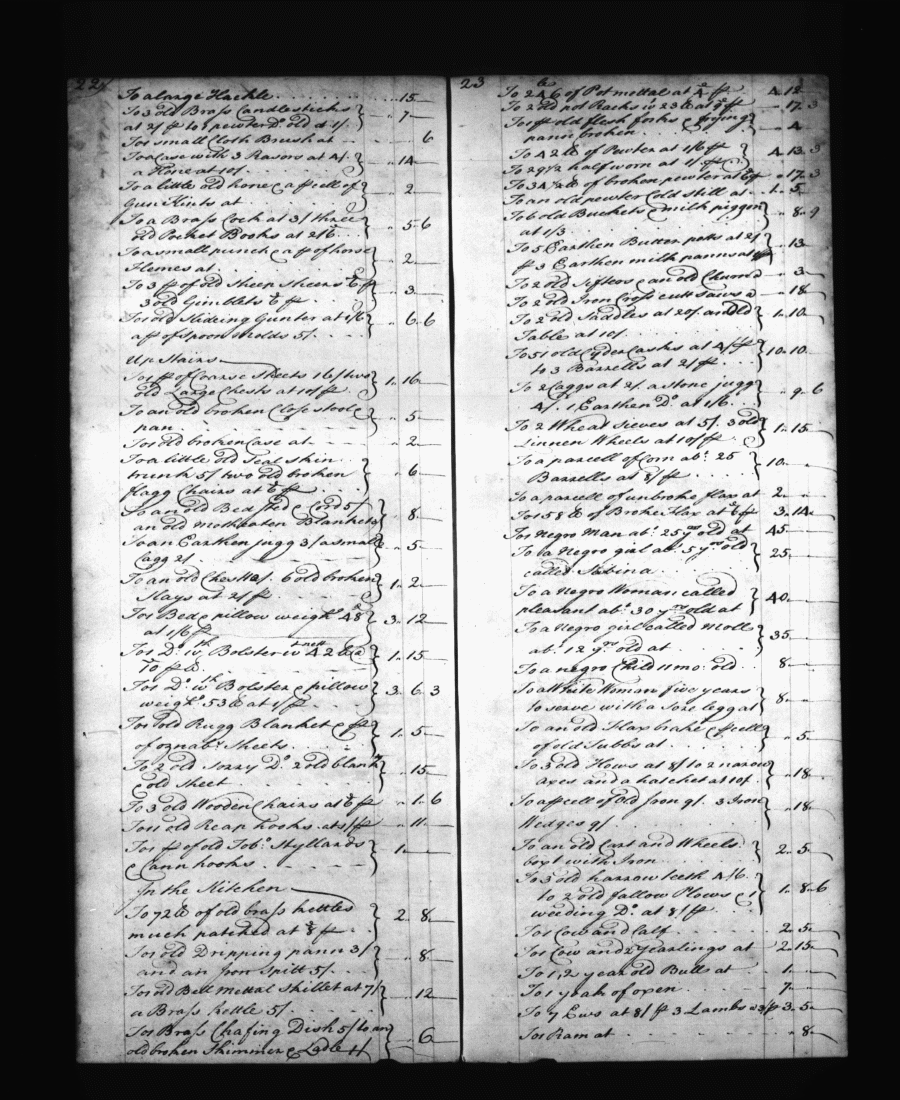 22
To a large Hackle .. 15
To 3 old Brass Candlesticks
at 2/ ⅌ to 1 pewter Do. old at 1/. .. 7
To 1 small Cloth Brush at .. 6
To a Case with 3 Rasors at 4/.
a Hone at 10/. .. 14
To a little old horse
Gun flints at .. 2
To a Brass Cock at 3/ three
old Pocket Books at 2/6 .. 5 6
To a small punch of horse
Flemes at .. 2
To 3 pr of old Sheep Sheers
3 old Gimblets .. 3
To 1 old Slideing Gunter at 1/6
of spoon molds 5/. .. 6 6
Up Stairs
To 1 pr of Coarse Sheets 16/ two
old Large Chests at 10/ ⅌ 1 16
To an old broken Close stool &
pan .. 5
To 1 old broken Case at .. 2
To a little old Seal skin
trunk 5/ two old broken
flagg Chairs at 6 ⅌ .. 6
To an old Bedsted & Cord 5/
an old motheaten Blankets .. 8
To an Earthen jugg 3/ a small
Cagg 2/ .. 5
To an old Chest 12/. 6 old broken
Slays at 2/ ⅌ 1 2
To 1 Bed & pillow weight 48
at 1/6 ⅌ 3 12
To 1 Do. wth Bolster wt 42 lb a
10 ⅌ lb 1 15
To 1 Do. wth Bolster & pillow
weight 53 lb at 1/ ⅌ 3 6 3
To 1 old Rugg Blanket & pr
of oznabs Sheets 1 5
To 2 old Sorry Do. 2 old blankts
& old Sheet .. 15
To 3 old Wooden Chairs at 6 ⅌ .. 1 6
To 11 old Reap hooks at 1/ ⅌ .. 11
To 1 pr of old Tobo. Styllards
& Cann hooks 1
In the Kitchen
To 72 lb of old brass kettles
much patched at 8 ⅌ 2 8
To 1 old Dripping pann 3/
and an Iron Spitt 5/ .. 8
To 1 old Bell mettal Skillet at 7/
a Brass kettle 5/ .. 12
To 1 Brass Chafing Dish 5/ to an
old broken Skimmer & Ladle 1/ .. 6
23
To 246 lbs of Pot mettal at 4 ⅌ 4 12
To 2 old pot Racks wt 23 lb at 9 ⅌ .. 17 3
To 1 pr old flesh forks & frying
pann broken .. 4
To 42 lb of Pewter at 1/6 ⅌ 4 13 3
To 29½ half worn at 1/ ⅌
To 34½ lb of broken pewter at 6 ⅌ .. 17 3
To an old pewter Cold still at 1 5
To 6 old Buckets & milk piggon
at 1/3 .. 8 9
To 5 Earthen Butter potts at 2/
⅌ 3 Earthen milk panns at 1/ ⅌ .. 13
To 2 old Sifters & an old Churn .. 3
To 2 old Iron Cross cutt saws a .. 18
To 2 old Saddles at 20/. an old
Table at 10/. 1 10
To 51 old Cyder Casks at 4/ ⅌
to 3 Barrells at 2/ ⅌ 10 10
To 2 Caggs at 2/. a stone jugg
4/. 1 Earthen Do. at 1/6 .. 9 6
To 2 Wheat Sieves at 5/. 3 old
Linnen Wheels at 10/ ⅌ 1 15
To a parcell of Corn abt. 25
Barrells at 8/ ⅌ 10
To a parcell of unbroke flax at 2
To 158 lb of Broke Flax at 6 ⅌ 3 14
To 1 Negro Man abt. 25 yrs old at 45
To 1 a Negro girl abt. 5 yrs old
called Sabina 25
To a Negro Woman called
pleasant abt. 30 yrs old at 40
To a Negro girl called Moll
abt. 12 yrs old at 35
To a negro Child 11 mo: old 8
To a White Woman five years
to serve with a sore legg at 8
To an old Flax brake & pcell
of old Tubbs at .. 5
To 3 old Hows at 8/ to 2 narow
axes and a hatchet at 10/. .. 18
To a pcell of old Iron 9/. 3 Iron
Wedges 9/ .. 18
To an old Cart and Wheels
boxt with Iron 2 5
To 3 old harrow teeth 4/6.
to 2 old fallow Plows & 1
weeding Do. at 8/ ⅌ 1 8 6
To 1 Cow and Calf 2 5
To 1 Cow and 2 Yearlings at 2 15
To 1, 2 year old Bull at 1
To 1 yoak of oxen 7
To 7 Ews at 8/ ⅌ 3 Lambs a 3/ ⅌ 3 5
To 1 Ram at .. 8